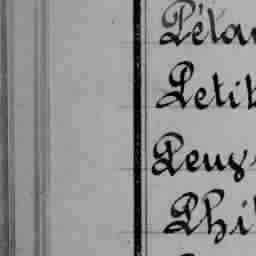 Péta
Petit
Peuy
Phil